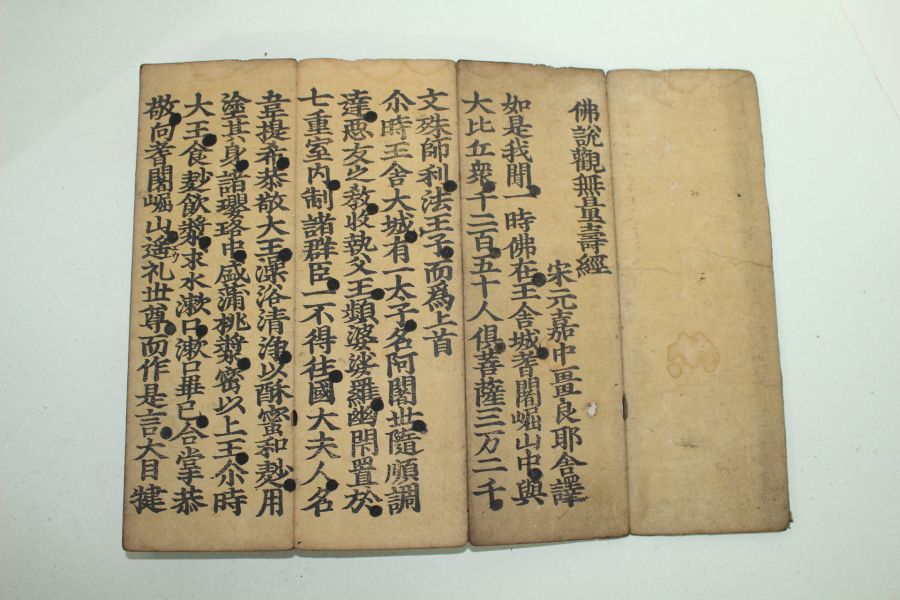 佛說觀無量壽經
宋元嘉中畺良耶舍譯
如是我聞一時佛在王舍城耆闍崛山中與
大比丘衆千二百五十人俱菩薩三万二千
文殊師利法王子而爲上首
尒時王舍大城有一太子名阿闍世隨順調
達惡友之敎收執父王頻婆娑羅幽閇置於
七重室內制諸群臣一不得往國大夫人名
韋提希恭敬大王澡浴清淨以酥蜜和麨用
塗其身諸瓔珞中盛蒲桃漿密以上王尒時
大王食麨飮漿求水漱口漱口畢已合掌恭
敬向耆闍崛山遙礼世尊而作是言大目揵